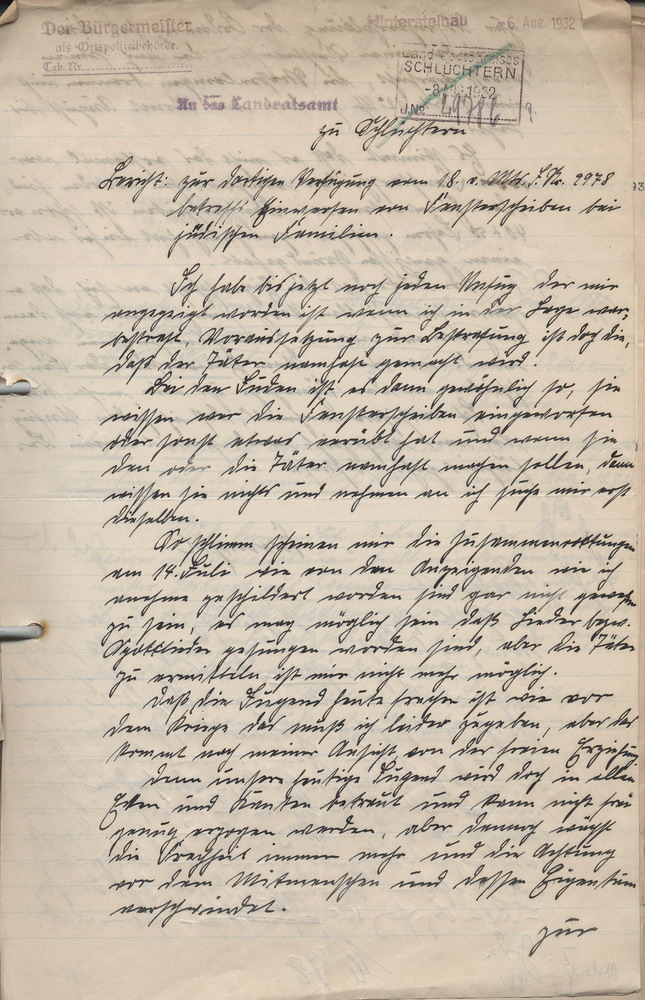 Der Bürgermeister
als Ortspolizeibehörde.
Tgb. Nr.
Hintersteinau 6. Aug. 1932
SCHLÜCHTERN
-8. 1932
J.No
An das Landratsamt
zu Schlüchtern
Bericht: zur dortigen Verfügung vom 18. v. Mts. J. No. 2978
betrifft Einwerfen von Fensterscheiben bei
jüdischen Familien.
Ich habe bis jetzt noch jeden Unfug der mir
angezeigt worden ist wenn ich in der Lage war,
bestraft, Voraussetzung zur Bestrafung ist doch die,
daß der Täter namhaft gemacht wird.
Bei den Juden ist es dann gewöhnlich so, sie
wissen wer die Fensterscheiben eingeworfen
oder sonst etwas verübt hat und wenn sie
den oder die Täter namhaft machen sollen, dann
wissen sie nichts und nehmen an ich suche mir erst
dieselben.
So schlimm scheinen mir die Zusammenrottungen
am 14. Juli wie von den Anzeigenden wie ich
annehme geschildert worden sind gar nicht gewesen
zu sein, es mag möglich sein daß Lieder bezw.
Spottlieder gesungen worden sind, aber die Täter
zu ermitteln ist mir nicht mehr möglich.
Daß die Jugend heute frecher ist wie vor
dem Kriege das muß ich leider zugeben, aber das
kommt nach meiner Ansicht von der freien Erziehung
denn unsere heutige Jugend wird doch in allen
Ecken und Kanten betreut und kann nicht frei
genug erzogen werden, aber dennoch wächst
die Frechheit immer mehr und die Achtung
vor dem Mitmenschen und dessen Eigentum
verschwindet.
Zur